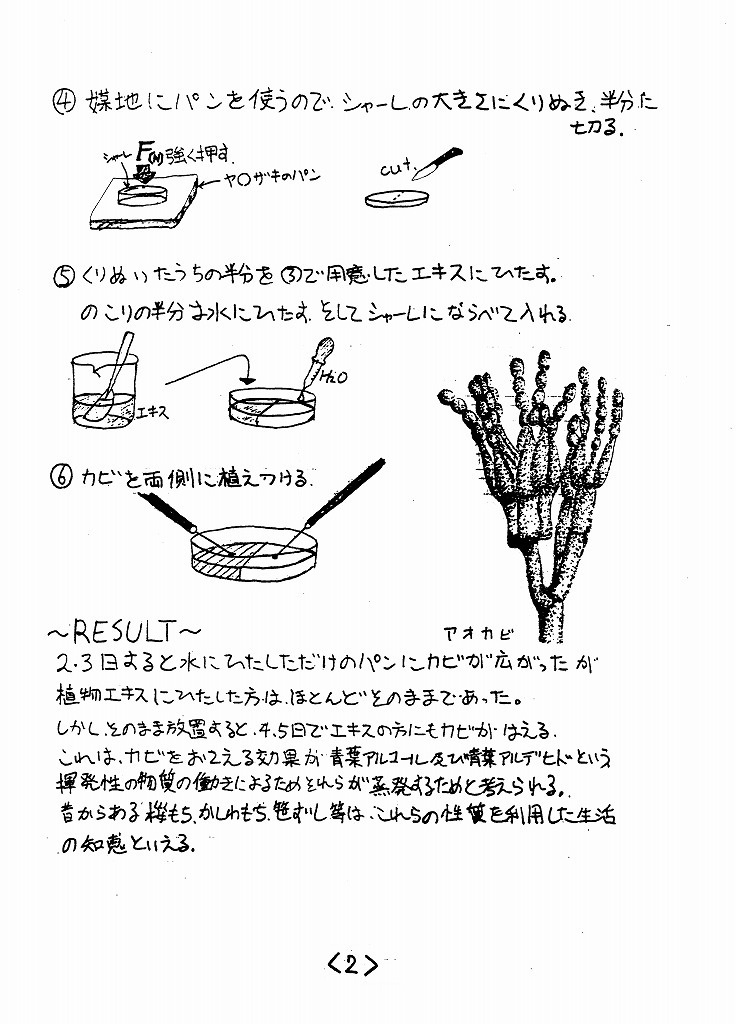 ④ 媒地にパンを使うので、シャーレの大きさにくりぬき、半分に
切る。
シャーレ F(N)強く押す。
ヤ〇ザキのパン
cut.
⑤ くりぬいたうちの半分を③で用意したエキスにひたす。
のこりの半分は水にひたす。そしてシャーレにならべて入れる。
エキス
H2O
⑥ カビを両側に植えつける。
アオカビ
～RESULT～
2.3日すると水にひたしただけのパンにカビが広がったが
植物エキスにひたした方は、ほとんどそのままであった。
しかし、そのまま放置すると、4.5日でエキスの方にもカビがはえる。
これは、カビをおさえる効果が青葉アルコール及び青葉アルデヒドという
揮発性の物質の働きによるためそれらが蒸発するためと考えられる。
昔からある桜もち、かしわもち、笹ずし等は、これらの性質を利用した生活
の知恵といえる。
<2>